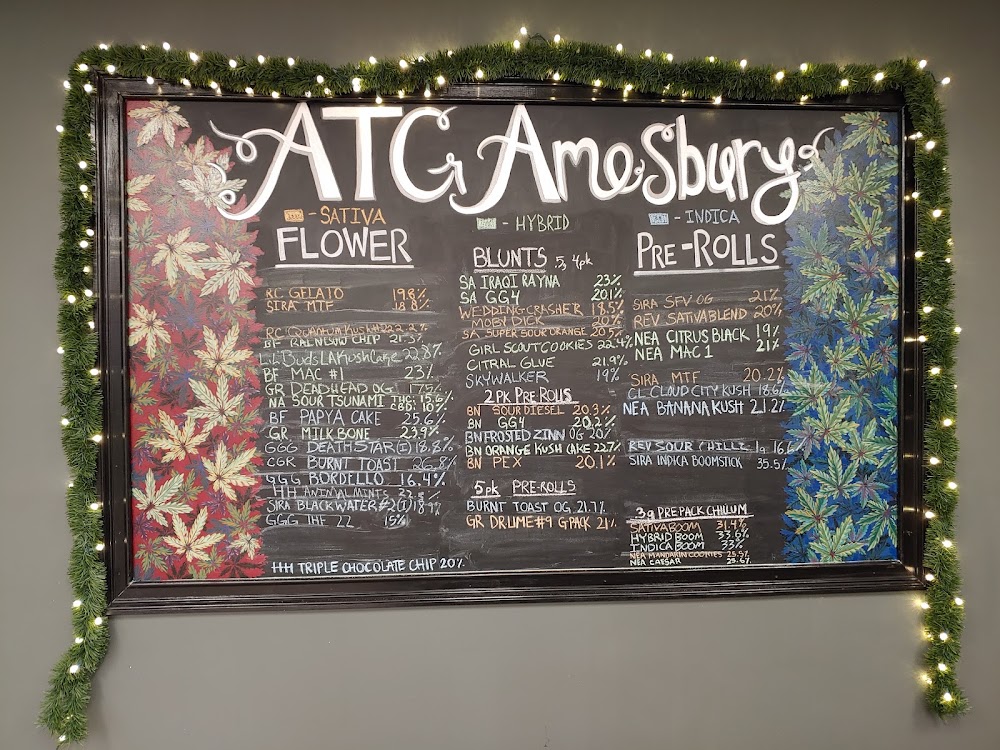 ATG Amesbury
- SATIVA
- HYBRID
- INDICA
FLOWER
RC GELATO 19.8%
SIRA MTF 18.8%
RC Quantum Kush #2 22.2%
BF RAINBOW CHIP 21.3%
Lil Buds LA Kush Cake 22.8%
BF MAC #1 23%
GR DEADHEAD OG 17.5%
NA SOUR TSUNAMI THC: 15.6% CBD: 10%
BF PAPYA CAKE 25.6%
GR MILK BONE 23.9%
GGG DEATH STAR (I) 18.8%
CGK BURNT TOAST 26.8%
GGG BORDELLO 16.4%
HH ANIMAL MINTS 22.5%
SIRA BLACKWATER #2 (I) 18.9%
GGG IHF 22 15%
HH TRIPLE CHOCOLATE CHIP 20%
BLUNTS .5g 4pk
SA IRAQI RAYNA 23%
SA GG4 20.1%
WEDDING CRASHER 18.5%
MOBY DICK 20%
SA SUPER SOUR ORANGE 20.5%
GIRL SCOUT COOKIES 22.4%
CITRAL GLUE 21.9%
SKYWALKER 19%
2PK PRE ROLLS
BN SOUR DIESEL 20.3%
BN GG4 20.2%
BN FROSTED ZINN OG 20%
BN ORANGE KUSH CAKE 22.7%
BN PEX 20.1%
5pk PRE-ROLLS
BURNT TOAST OG 21.7%
GR DR LIME #9 6 PACK 21%
PRE-ROLLS
SIRA SFV OG 21%
REV SATIVA BLEND 20%
NEA CITRUS BLACK 19%
NEA MAC 1 21%
SIRA MTF 20.2%
CL CLOUD CITY KUSH 18.6%
NEA BANANA KUSH 21.2%
REV SOUR CHILLZ 1g 16.6%
SIRA INDICA BOOMSTICK 35.5%
3g PREPACK CHILLUM
SATIVA BOOM 31.4%
HYBRID BOOM 33.6%
INDICA BOOM 33%
NEA MANDARIN COOKIES 25.5%
NEA CAESAR 25.6%